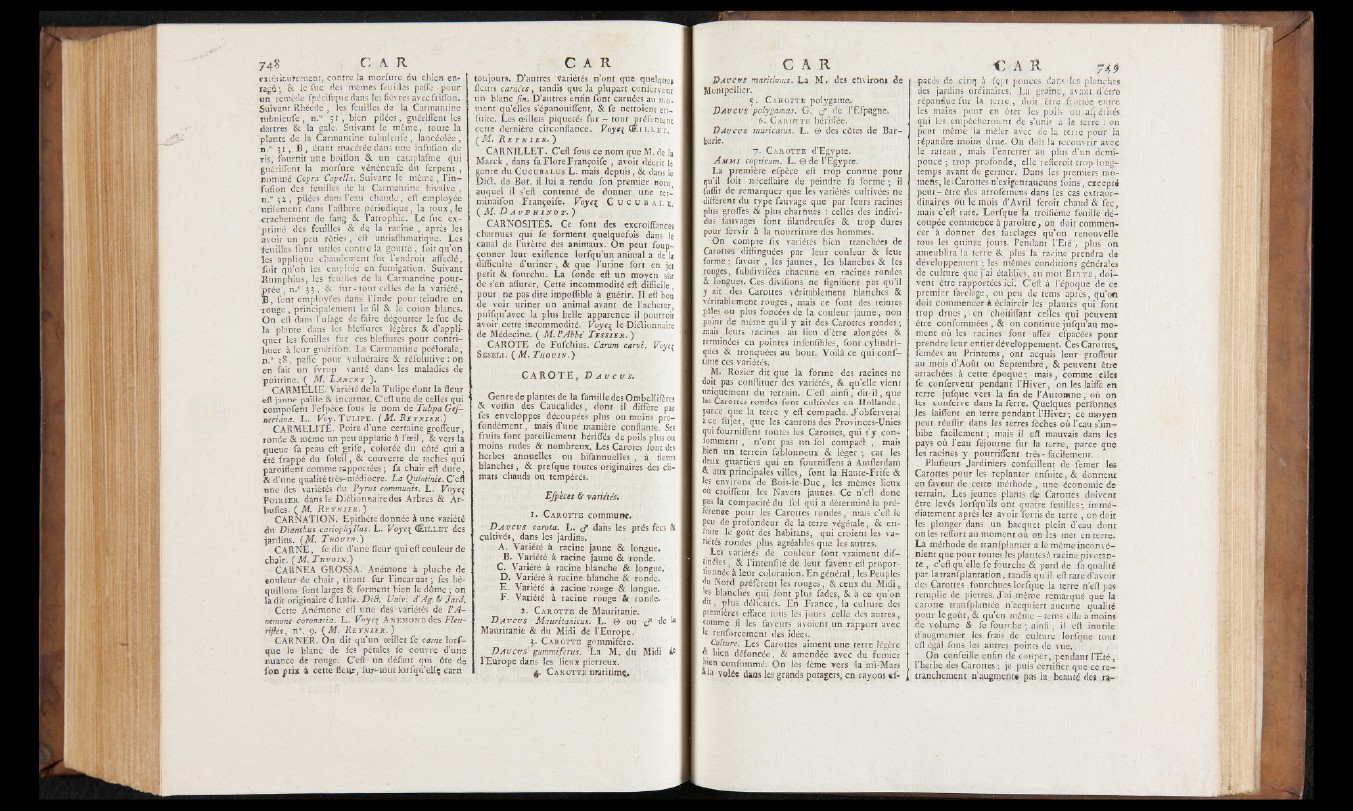 748 C A R
extérieurement, contre la morsure du chien en-
ragé; & le suc des mêmes feuilles passe pour
un remède spécifique dans les fièvres avec frisson.
Suivant Rhéede, les feuilles de la Carmantine
tubuleuse, n.° 31, bien pilées, guérissent les
dartres & la gale. Suivant le même, toute la
plante de la Carmantine tubuleuse, lancéolée,
n.° 31, B, étant macérée dans une infusion de
ris, fournit une boisson & un cataplasme qui
guérissent la morsure vénéneuse du serpent,
nommé Copra Capella. Suivant le même, l'in-
fusion des feuilles de la Carmantine bivalve,
n.° 32, pilées dans l'eau chaude, est employée
utilement dans l'asthme périodique, la toux, le
crachement de sang & l'atrophie. Le suc ex-
primé des feuilles & de la racine, après les
avoir un peu rôties, est antiasthmatique. Les
feuilles sont utiles contre la goutte, soit qu'on
les applique chaudement sur l'endroit affecté,
soit qu'on les emploie en fumigation. Suivant
Rumphius, les feuilles de la Carmantine pour-
prée, n.° 33, & sur-tout celles de la variété,
B, sont employées dans l'Inde pour teindre en
rouge, principalement le fil & le coton blancs.
On est dans l'usage de faire dégoutter le suc de
la plante dans les blessures légères & d'appli-
quer les feuilles sur ces blessures pour contri-
buer à leur guérison. La Carmantine pectorale,
n.° 38, passe pour vulnéraire & résolutive: on
en fait un syrop vanté dans les maladies de
poitrine. ( M. LANCRY ).
CARMÉLIE. Variété de la Tulipe dont la fleur
est jaune paille & incarnat. C'est une de celles qui
composent l'espèce sous le nom de Tulipa Ges-
neriana. L. Voy. TULIPE. (M. REYNIER.)
CARMELITE. Poire d'une certaine grosseur,
ronde & même un peu applatie à l'œil, & vers la
queue sa peau est grise, colorée du côté qui a
été frappé du soleil, & couverte de taches qui
paroissent comme rapportées; sa chair est dure,
& d'une qualité très-médiocre. La Quintinie. C'est
une des variétés du Pyrus communis. L. Voyez
POIRIER dans le Dictionnaire des Arbres & Ar-
bustes. ( M. REYNIER. )
CARNATION. Epithète donnée à une variété
du Dianthus cariophyllus. L. Voyez ŒILLET des
jardins. (M. THOUIN.)
CARNE, se dit d'une fleur qui est couleur de
chair. ( M. THOUIN.)
CARNEA GROSSA. Anémone à pluche de
couleur de chair, tirant sur l'incarnat; ses bé-
quillons sont larges & forment bien le dôme; on
la dit originaire d'Italie. Dict. Univ. d'Ag. & Jard.
Cette Anémone est une des variétés de l'A-
nemone coronaria. L. Voyez ANEMONE des Fleu-
ristes, n°. 9. ( M. REYNIER. )
CARNER. On dit qu'un œillet se carne lors-
que le blanc de ses pétales se couvre d'une
nuance de rouge. C'est un défaut qui ôte de
son prix à cette fleur, sur-tout lorsqu'elle carn
C A R
toujours. D'autres variétés n'ont que quelques
fleurs carnées, tandis que la plupart conservent
un blanc fin. D'autres enfin sont carnées au mo-
ment qu'elles s'épanouissent, & se nettoient en-
suite. Les œillets piquetés sur - tout présentent
cette dernière circonstance. Voyez ŒILLET.
( M. REYNIER. )
CARNILLET. C'est sous ce nom que M. de la
Marck, dans sa Flore Françoise, avoit décrit le
genre du CUCUBALUS L. mais depuis, & dans le
Dict. de Bot. il lui a rendu son premier nom,
auquel il s'est contenté de donner une ter-
minaison Françoise. Voyez CUCUBALE.
( M. DAUPHINOT. )
CARNOSITÉS. Ce sont des excroissances
charnues qui se forment quelquefois dans le
canal de l'urètre des animaux. On peut soup-
çonner leur existence lorsqu'un animal a de la
difficulté d'uriner, & que l'urine sort en jet
petit & fourchu. La sonde est un moyen sûr
de s'en assurer. Cette incommodité est difficile,
pour ne pas dire impossible à guérir. Il est bon
de voir uriner un animal avant de l'acheter,
puisqu'avec la plus belle apparence il pourroit
avoir cette incommodité. Voyez le Dictionnaire
de Médecine. ( M. l'Abbé TESSIER. )
CAROTE de Fuschius. Carum carvi. Voyez
SESELI. ( M. THOUIN. )
CAROTE, DAUCUS.
Genre de plantes de la famille des Ombellifères
& voisin des Caucalides, dont il diffère par
ses enveloppes découpées plus ou moins pro-
fondément, mais d'une manière constante. Ses
fruits sont pareillement hérissés de poils plus ou
moins rudes & nombreux. Les Carotes sont des
herbes annuelles ou bisannuelles, à fleurs
blanches, & presque toutes originaires des cli-
mats chauds ou tempérés.
Espèces & variétés.
1. CAROTTE commune.
DAUCUS carota. L. ♂ dans les prés secs &
cultivés, dans les jardins.
A. Variété à racine jaune & longue.
B. Variété à racine jaune & ronde.
C. Variété à racine blanche & longue.
D. Variété à racine blanche & ronde.
E. Variété à racine rouge & longue.
F. Variété à racine rouge & ronde.
2. CAROTTE de Mauritanie.
DAUCUS Mauritanicus. L. ⊙ ou ♂ de la
Mauritanie & du Midi de l'Europe.
3. CAROTTE gommifère.
DAUCUS gummiferus. La M. du Midi de
l'Europe dans les lieux pierreux.
4. CAROTTE maritime.
C A R
DAUCUS maritimus. La M. des environs de
Montpellier.
5. CAROTTE polygame.
DAUCUS polygamus. G. ♂ de l'Espagne.
6. CAROTTE hérissée.
DAUCUS muricatus. L. ⊙ des côtes de Bar-
barie.
7. CAROTTE d'Egypte.
AMMI copticum. L. ⊙ de l'Egypte.
La première espèce est trop connue pour
qu'il soit nécessaire de peindre sa forme; il
suffit de remarquer que les variétés cultivées ne
diffèrent du type sauvage que par leurs racines
plus grosses & plus charnues: celles des indivi-
dus sauvages sont filandreuses & trop dures
pour servir à la nourriture des hommes.
On compte six variétés bien tranchées de
Carottes distinguées par leur couleur & leur
forme; savoir, les jaunes, les blanches & les
rouges, subdivisées chacune en racines rondes
& longues. Ces divisions ne signifient pas qu'il
y ait des Carottes véritablement blanches &
véritablement rouges, mais ce sont des teintes
pâles ou plus foncées de la couleur jaune, non
point de même qu'il y ait des Carottes rondes,
mais leurs racines au lieu d'être alongées &
terminées en pointes insensibles, sont cylindri-
ques & tronquées au bout. Voilà ce qui consti-
titue ces variétés.
M. Rozier dit que la forme des racines ne
doit pas constituer des variétés, & qu'elle vient
uniquement du terrain. C'est ainsi, dit-il, que
les Carottes rondes sont cultivées en Hollande,
parce que la terre y est compacte. J'observerai
à ce sujet, que les cantons des Provinces-Unies
qui fournissent toutes les Carottes, qui s'y con-
somment, n'ont pas un sol compact, mais
bien un terrein sablonneux & léger; car les
deux quartiers qui en fournissent à Amsterdam
& aux principales villes, sont la Haute-Frise &
les environs de Bois-le-Duc, les mêmes lieux
où croissent les Navets jaunes. Ce n'est donc
pas la compacité du sol qui a déterminé la pré-
férence pour les Carottes rondes, mais c'est le
peu de profondeur de la terre végétale, & en-
suite le goût des habitans, qui croient les va-
riétés rondes plus agréables que les autres.
Les variétés de couleur sont vraiment dis-
tinctes, & l'intensité de leur saveur est propor-
tionnée à leur coloration. En général, les Peuples
du Nord préfèrent les rouges, & ceux du Midi,
les blanches qui sont plus fades, & à ce qu'on
dit, plus délicates. En France, la culture des
premières efface tous les jours celle des autres,
comme si les saveurs avoient un rapport avec
le renforcement des idées.
Culture. Les Carottes aiment une terre légère
& bien défoncée, & amendée avec du fumier
bien consommé. On les sème vers la mi-Mars
à la volée dans les grands potagers, en rayons es-
C A R 749
pacés de cinq à six pouces dans les planches
des jardins ordinaires. La graine, avant d'être
répandue sur la terre, doit être frottée entre
les mains pour en ôter les poils ou aspérités
qui les empêcheroient de s'unir à la terre: on
peut même la mêler avec de la terre pour la
répandre moins drue. On doit la recouvrir avec
le rateau, mais l'enterrer au plus d'un demi-
pouce; trop profonde, elle resteroit trop long-
temps avant de germer. Dans les premiers mo-
mens, les Carottes n'exigent aucuns soins, excepté
peut-être des arrosemens dans les cas extraor-
dinaires où le mois d'Avril seroit chaud & sec,
mais c'est rare. Lorsque la troisième feuille dé-
coupée commence à paroître, on doit commen-
cer à donner des sarclages qu'on renouvelle
tous les quinze jours. Pendant l'Eté, plus on
ameublira la terre & plus la racine prendra de
développement; les mêmes conditions générales
de culture que j'ai établies, au mot BETTE, doi-
vent être rapportées ici. C'est à l'époque de ce
premier sarclage, ou peu de tems après, qu'on
doit commencer à éclaircir les plantes qui sont
trop drues, en choisissant celles qui peuvent
être consommées, & on continue jusqu'au mo-
ment où les racines sont assez espacées pour
prendre leur entier développement. Ces Carottes,
semées au Printems, ont acquis leur grosseur
au mois d'Août ou Septembre, & peuvent être
arrachées à cette époque; mais, comme elles
se conservent pendant l'Hiver, on les laisse en
terre jusque vers la fin de l'Automne, où on
les conserve dans la serre. Quelques personnes
les laissent en terre pendant l'Hiver; ce moyen
peut réussir dans les terres sèches où l'eau s'im-
bibe facilement; mais il est mauvais dans les
pays où l'eau séjourne sur la terre, parce que
les racines y pourrissent très-facilement.
Plusieurs Jardiniers conseillent de semer les
Carottes pour les replanter ensuite, & donnent
en faveur de cette méthode, une économie de
terrain. Les jeunes plants de Carottes doivent
être levés lorsqu'ils ont quatre feuilles; immé-
diatement après les avoir sortis de terre, on doit
les plonger dans un bacquet plein d'eau dont
on les ressort au moment où on les met en terre.
La méthode de transplanter a le même inconvé-
nient que pour toutes les plantes à racine pivotan-
te, c'est qu'elle se fourche & perd de sa qualité
par la transplantation, tandis qu'il est rare d'avoir
des Carottes fourchues lorsque la terre n'est pas
remplie de pierres. J'ai même remarqué que la
carotte transplantée n'acquiert aucune qualité
pour le goût, & qu'en même-tems elle a moins
de volume & se fourche; ainsi, il est inutile
d'augmenter les frais de culture lorsque tout
est égal sous les autres points de vue.
On conseille enfin de couper, pendant l'Eté,
l'herbe des Carottes; je puis certifier que ce re-
tranchement n'augmente pas la beauté des ra-